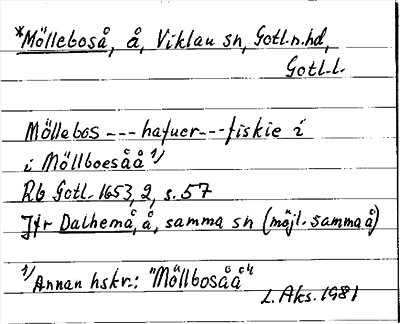 *Mölleboså, å, Viklau sn, Gotl.n.hd,
Gotl.l.
Möllebos --- hafuer --- fiskie i
i Möllboesåå 1)
Rb Gotl. 1653, 2, s. 57
Jfr Dalhemå, å, samma sn (möjl. samma å)
1) Annan hskr.: "Möllbosåå"
L. Aks. 1981